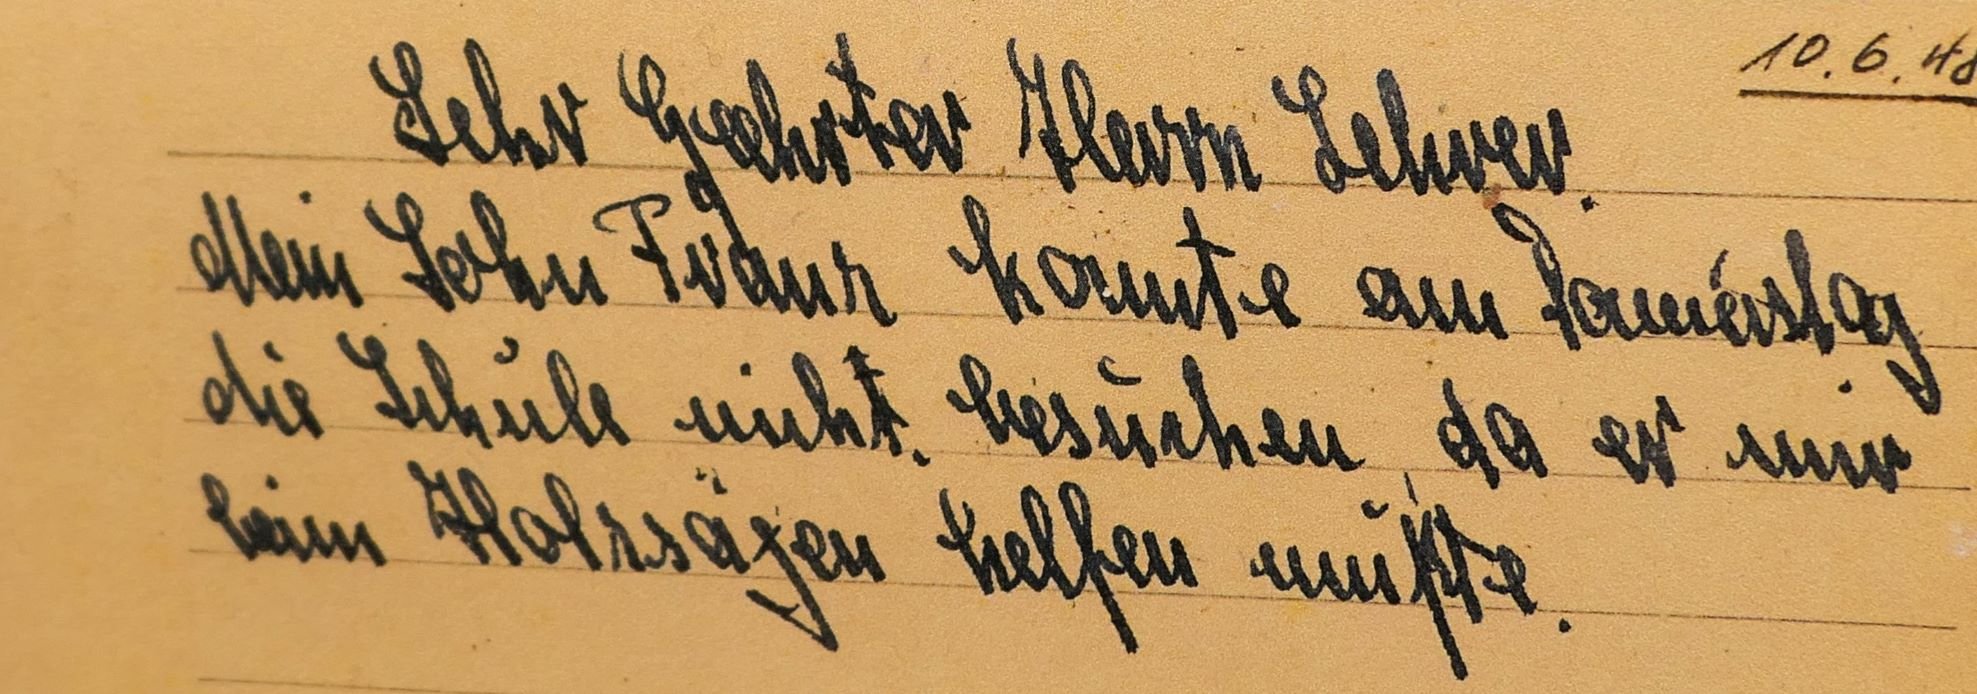 10.6.48
Sehr Geehrter Herrn Lehrer.
Mein Sohn Franz konnte am Samerstag
die Schule nicht. besuchen, da er mir
beim Holzsägen helfen mußte.